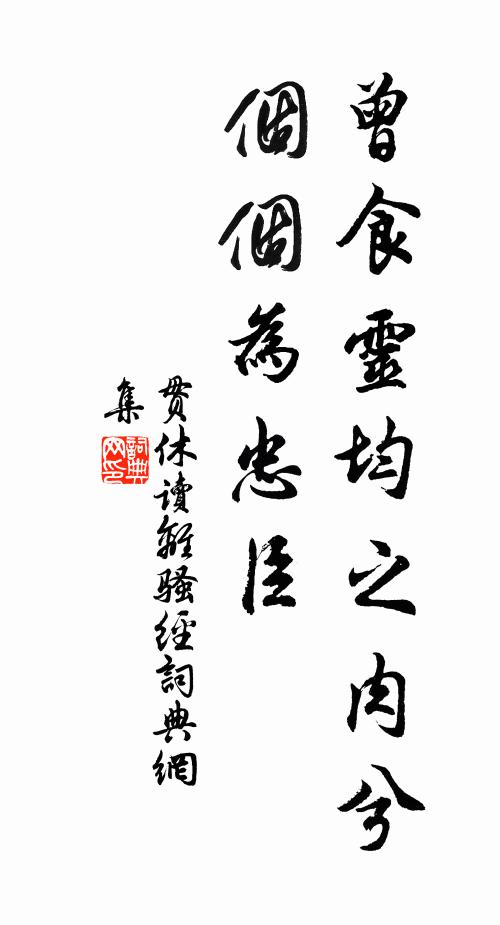 曾食靈均之肉兮
個個為忠臣
貫休讀離騷經詞典網
集
詞典
网印